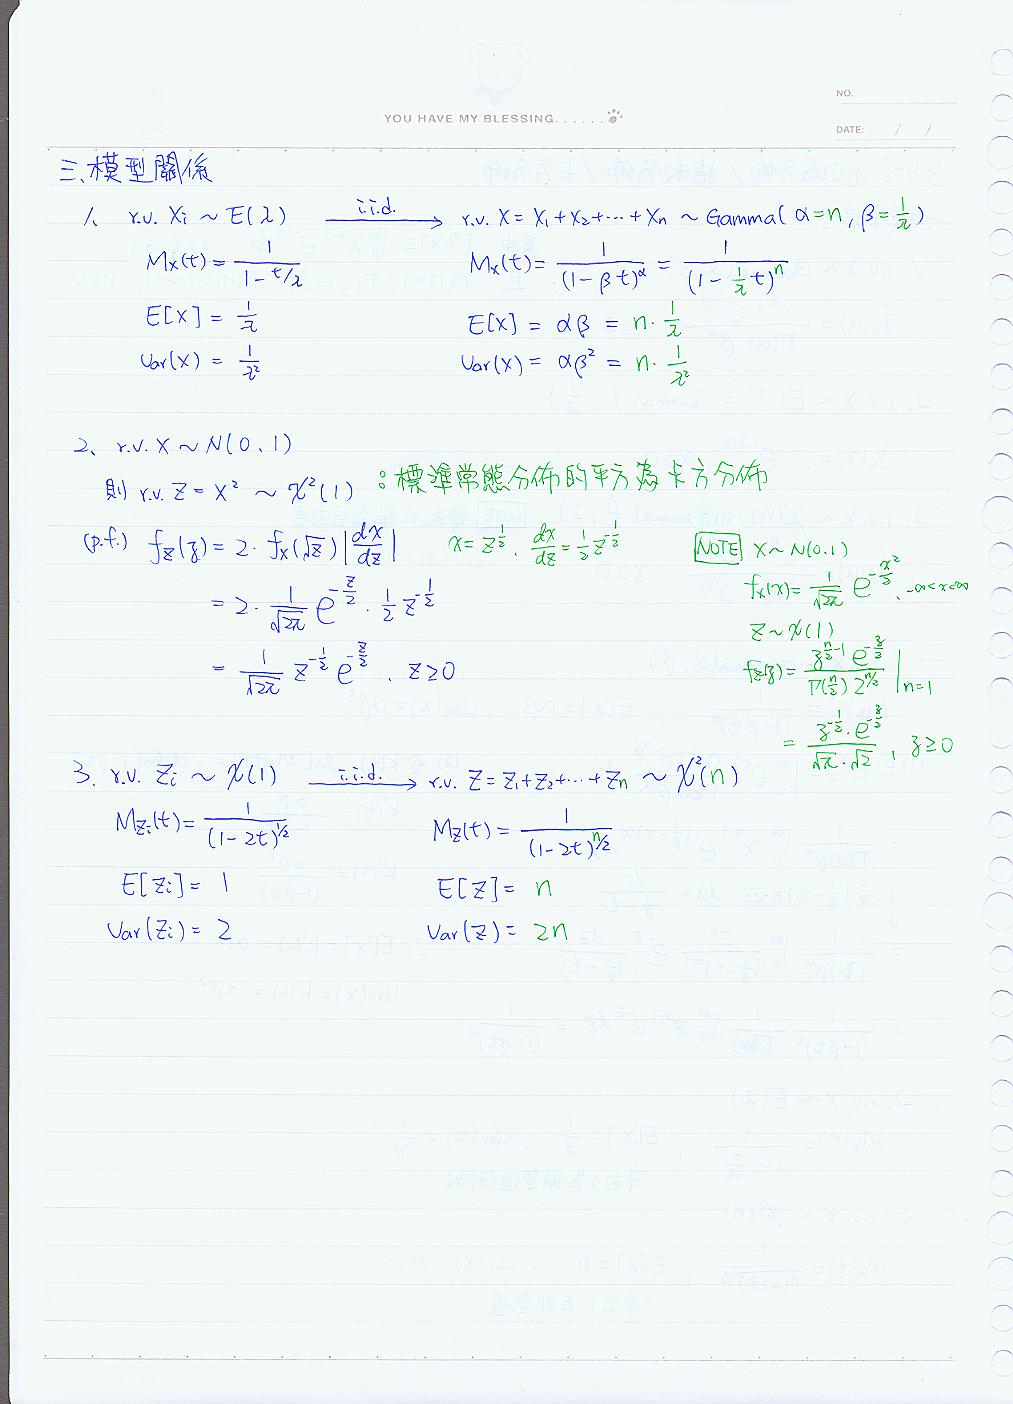 YOU HAVE MY BLESSING......
NO.
DATE: / /
三、模型關係
1、 r.v. Xi ~ E(λ) i.i.d.→ r.v. X = X1+X2+⋯+Xn ~ Gamma(α=n, β=1/λ)
Mx(t) = 1/(1-t/λ) Mx(t) = 1/(1-βt)^α = 1/(1-(1/λ)t)^n
E[X] = 1/λ E[X] = αβ = n·1/λ
Var(X) = 1/λ² Var(X) = αβ² = n·1/λ²
2、 r.v. X ~ N(0,1)
則 r.v. Z = X² ~ χ²(1) :標準常態分佈的平方為卡方分佈
(p.f.) fz(z) = 2·fx(√z)|dx/dz| x = z^(1/2), dx/dz = 1/2 z^(-1/2)
= 2·1/√(2π) e^(-z/2)·1/2 z^(-1/2)
= 1/√(2π) z^(-1/2) e^(-z/2), z≥0
NOTE X ~ N(0,1)
fx(x) = 1/√(2π) e^(-x²/2), -∞<x<∞
Z ~ χ(1)
fz(z) = z^(n/2-1) e^(-z/2) / (Γ(n/2) 2^(n/2)) |n=1
= z^(-1/2)·e^(-z/2) / (√π·√2), z≥0
3、 r.v. Zi ~ χ(1) i.i.d.→ r.v. Z = Z1+Z2+⋯+Zn ~ χ²(n)
Mzi(t) = 1/(1-2t)^(1/2) Mz(t) = 1/(1-2t)^(n/2)
E[Zi] = 1 E[Z] = n
Var(Zi) = 2 Var(Z) = 2n